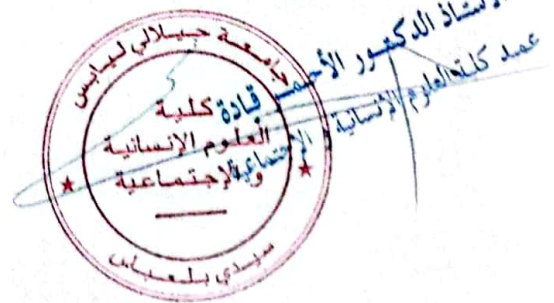 الأستاذ الدكتور الأحمر قادة
عميد كلية العلوم الإنسانية و الإجتماعية
جامعة جيلالي ليابس
كلية
العلوم الإنسانية
والإجتماعية
سيدي بلعباس